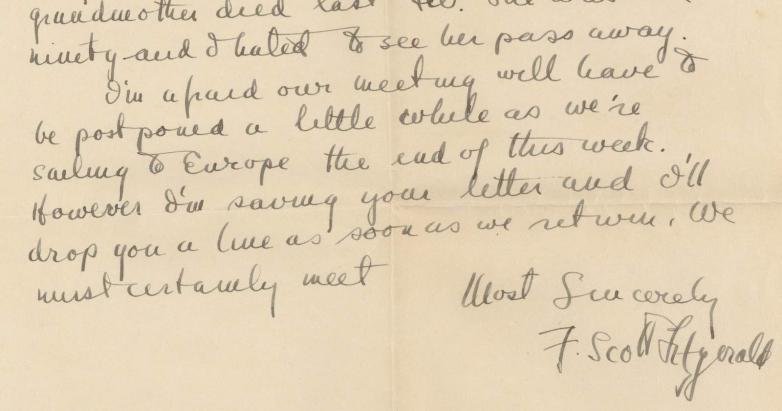 grandmother died last Feb. She was
ninety and I hated to see her pass away.
I'm afraid our meeting will have to
be postponed a little while as we're
sailing to Europe the end of this week.
However I'm saving your letter and I'll
drop you a line as soon as we return. We
must certainly meet
Most Sincerely
F. Scott Fitzgerald